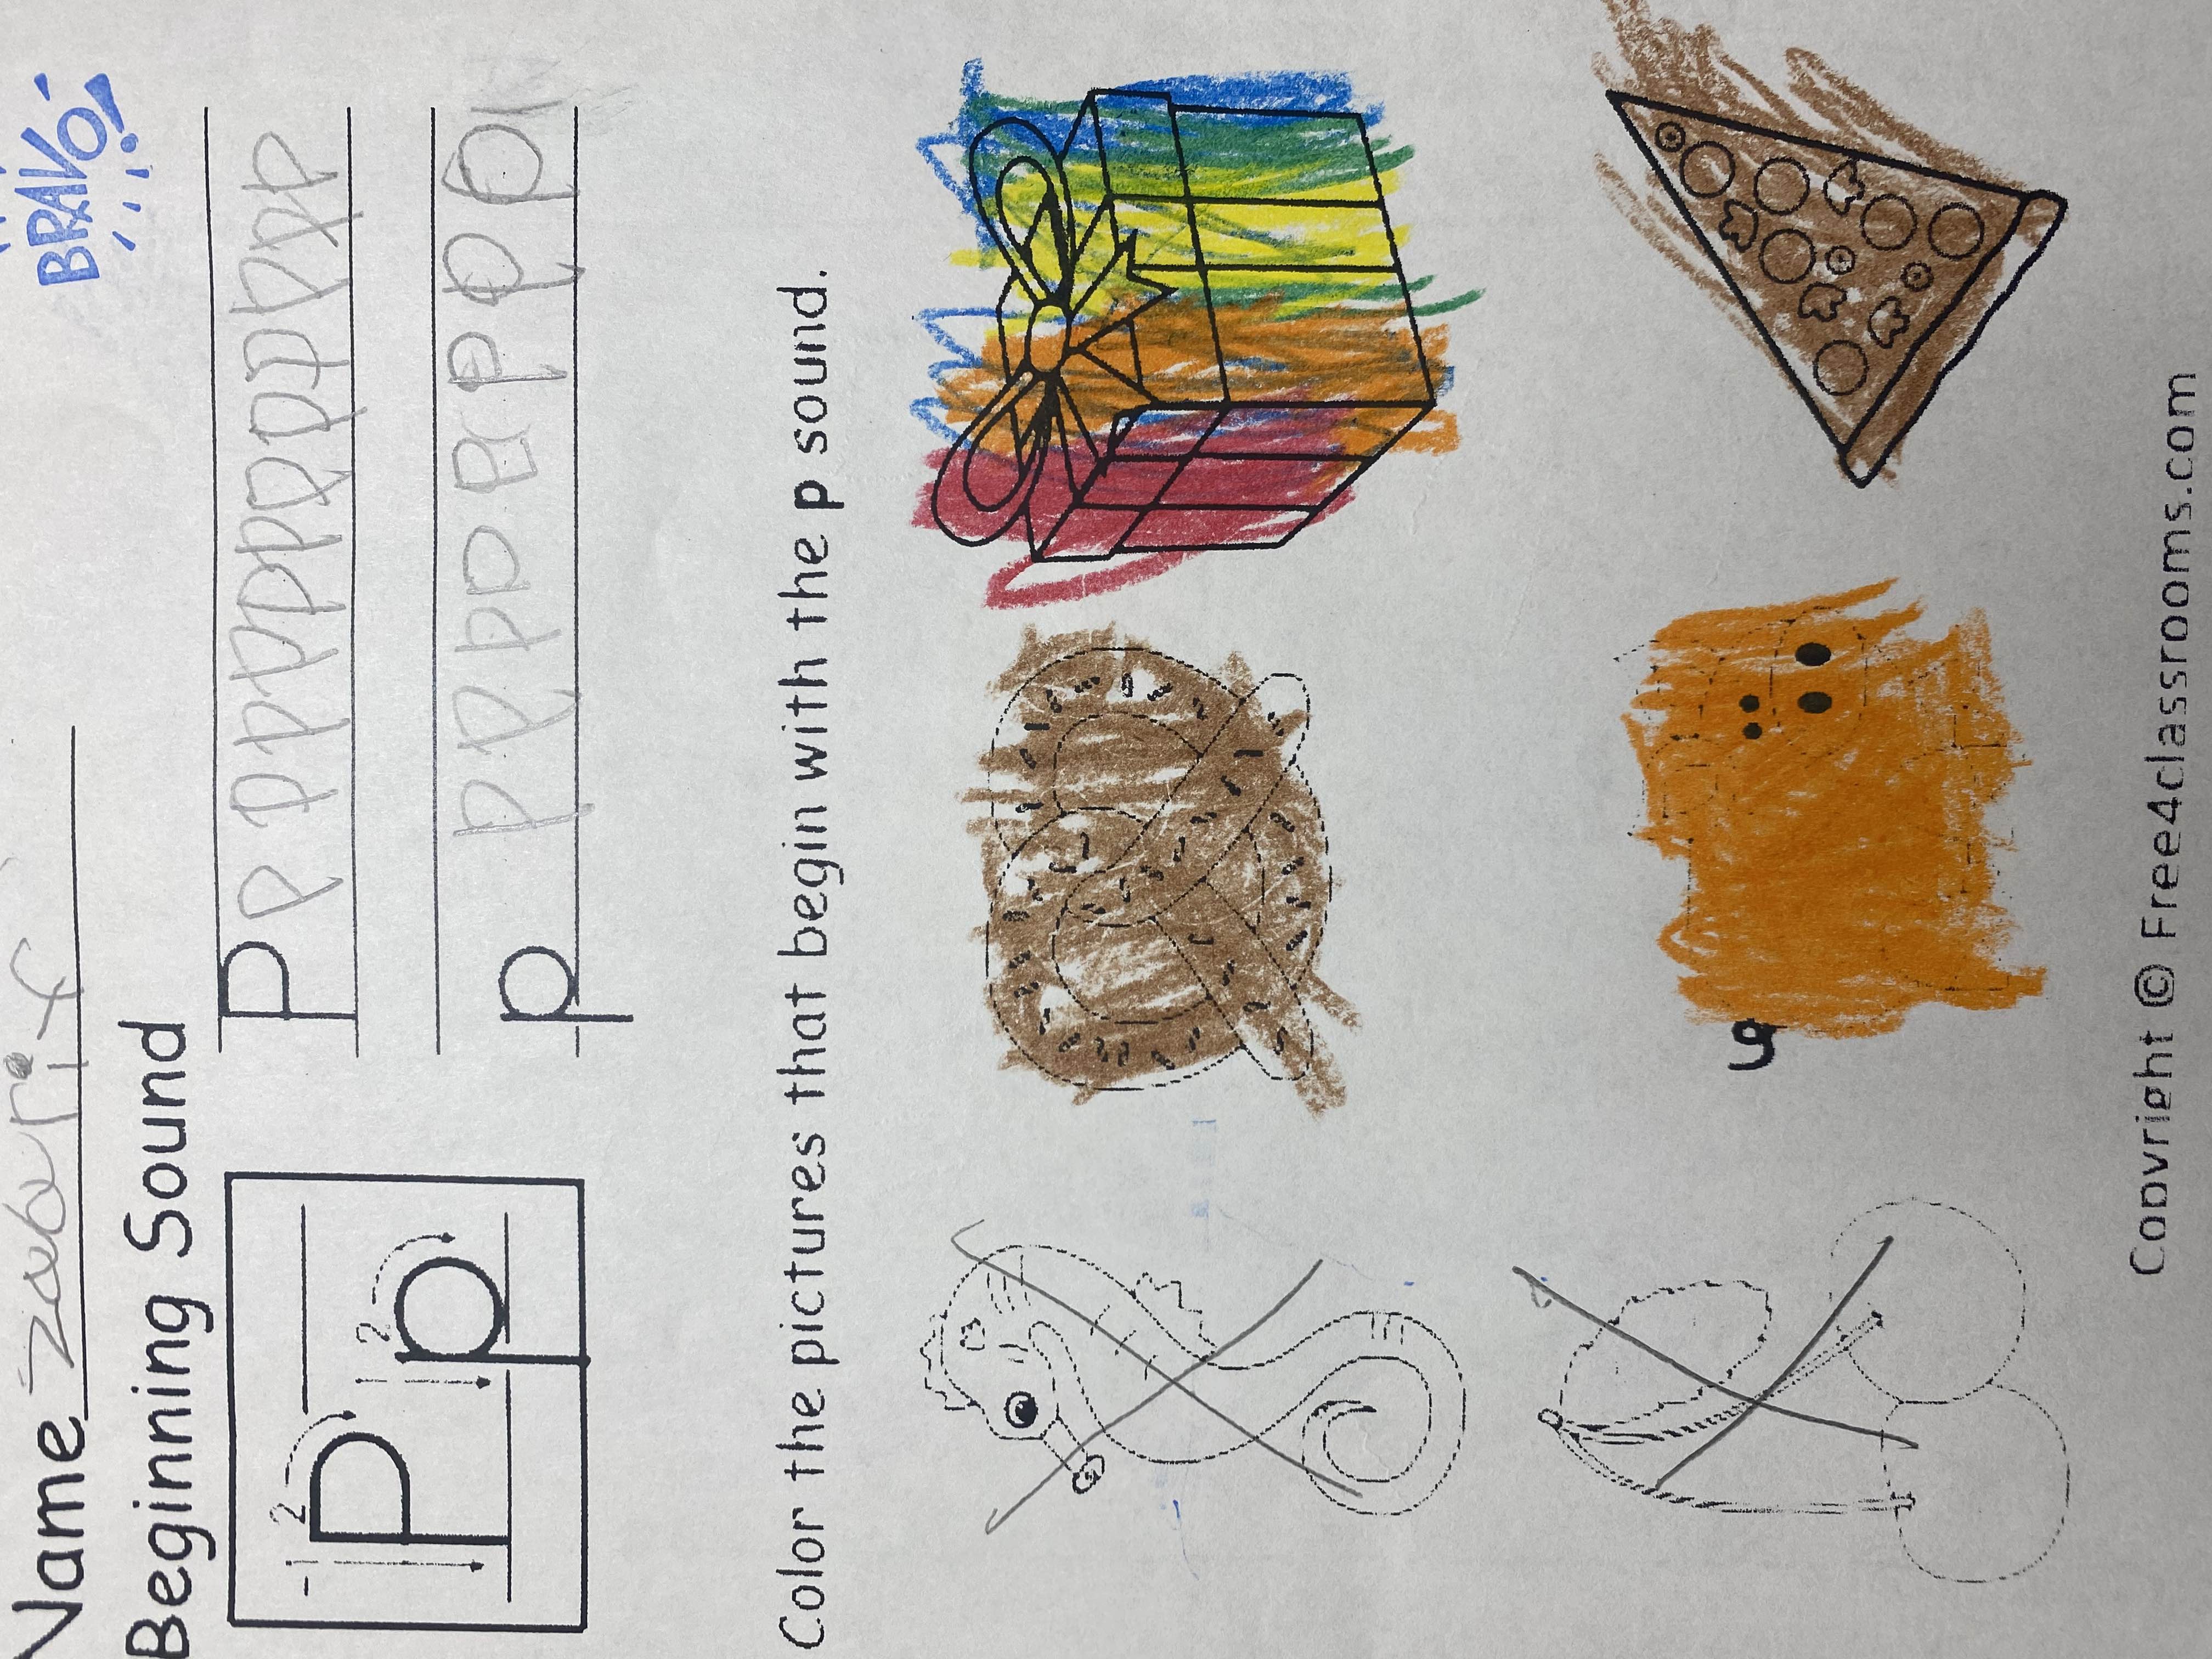 Name
BRAVO!
Beginning Sound
1 2 1 2
Pp
P P P P P P P P P P P P P
p p p p p p p p p
Color the pictures that begin with the p sound.
Copyright © Free4classrooms.com